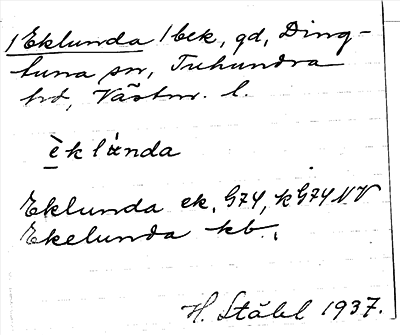 1 Eklunda 1 bek, gd, Ding-
tuna sn, Tuhundra
hd, Västm. l.
èklùnda
Eklunda ek. G74, kG74NV
Ekelunda kb.
H. Ståhl 1937.